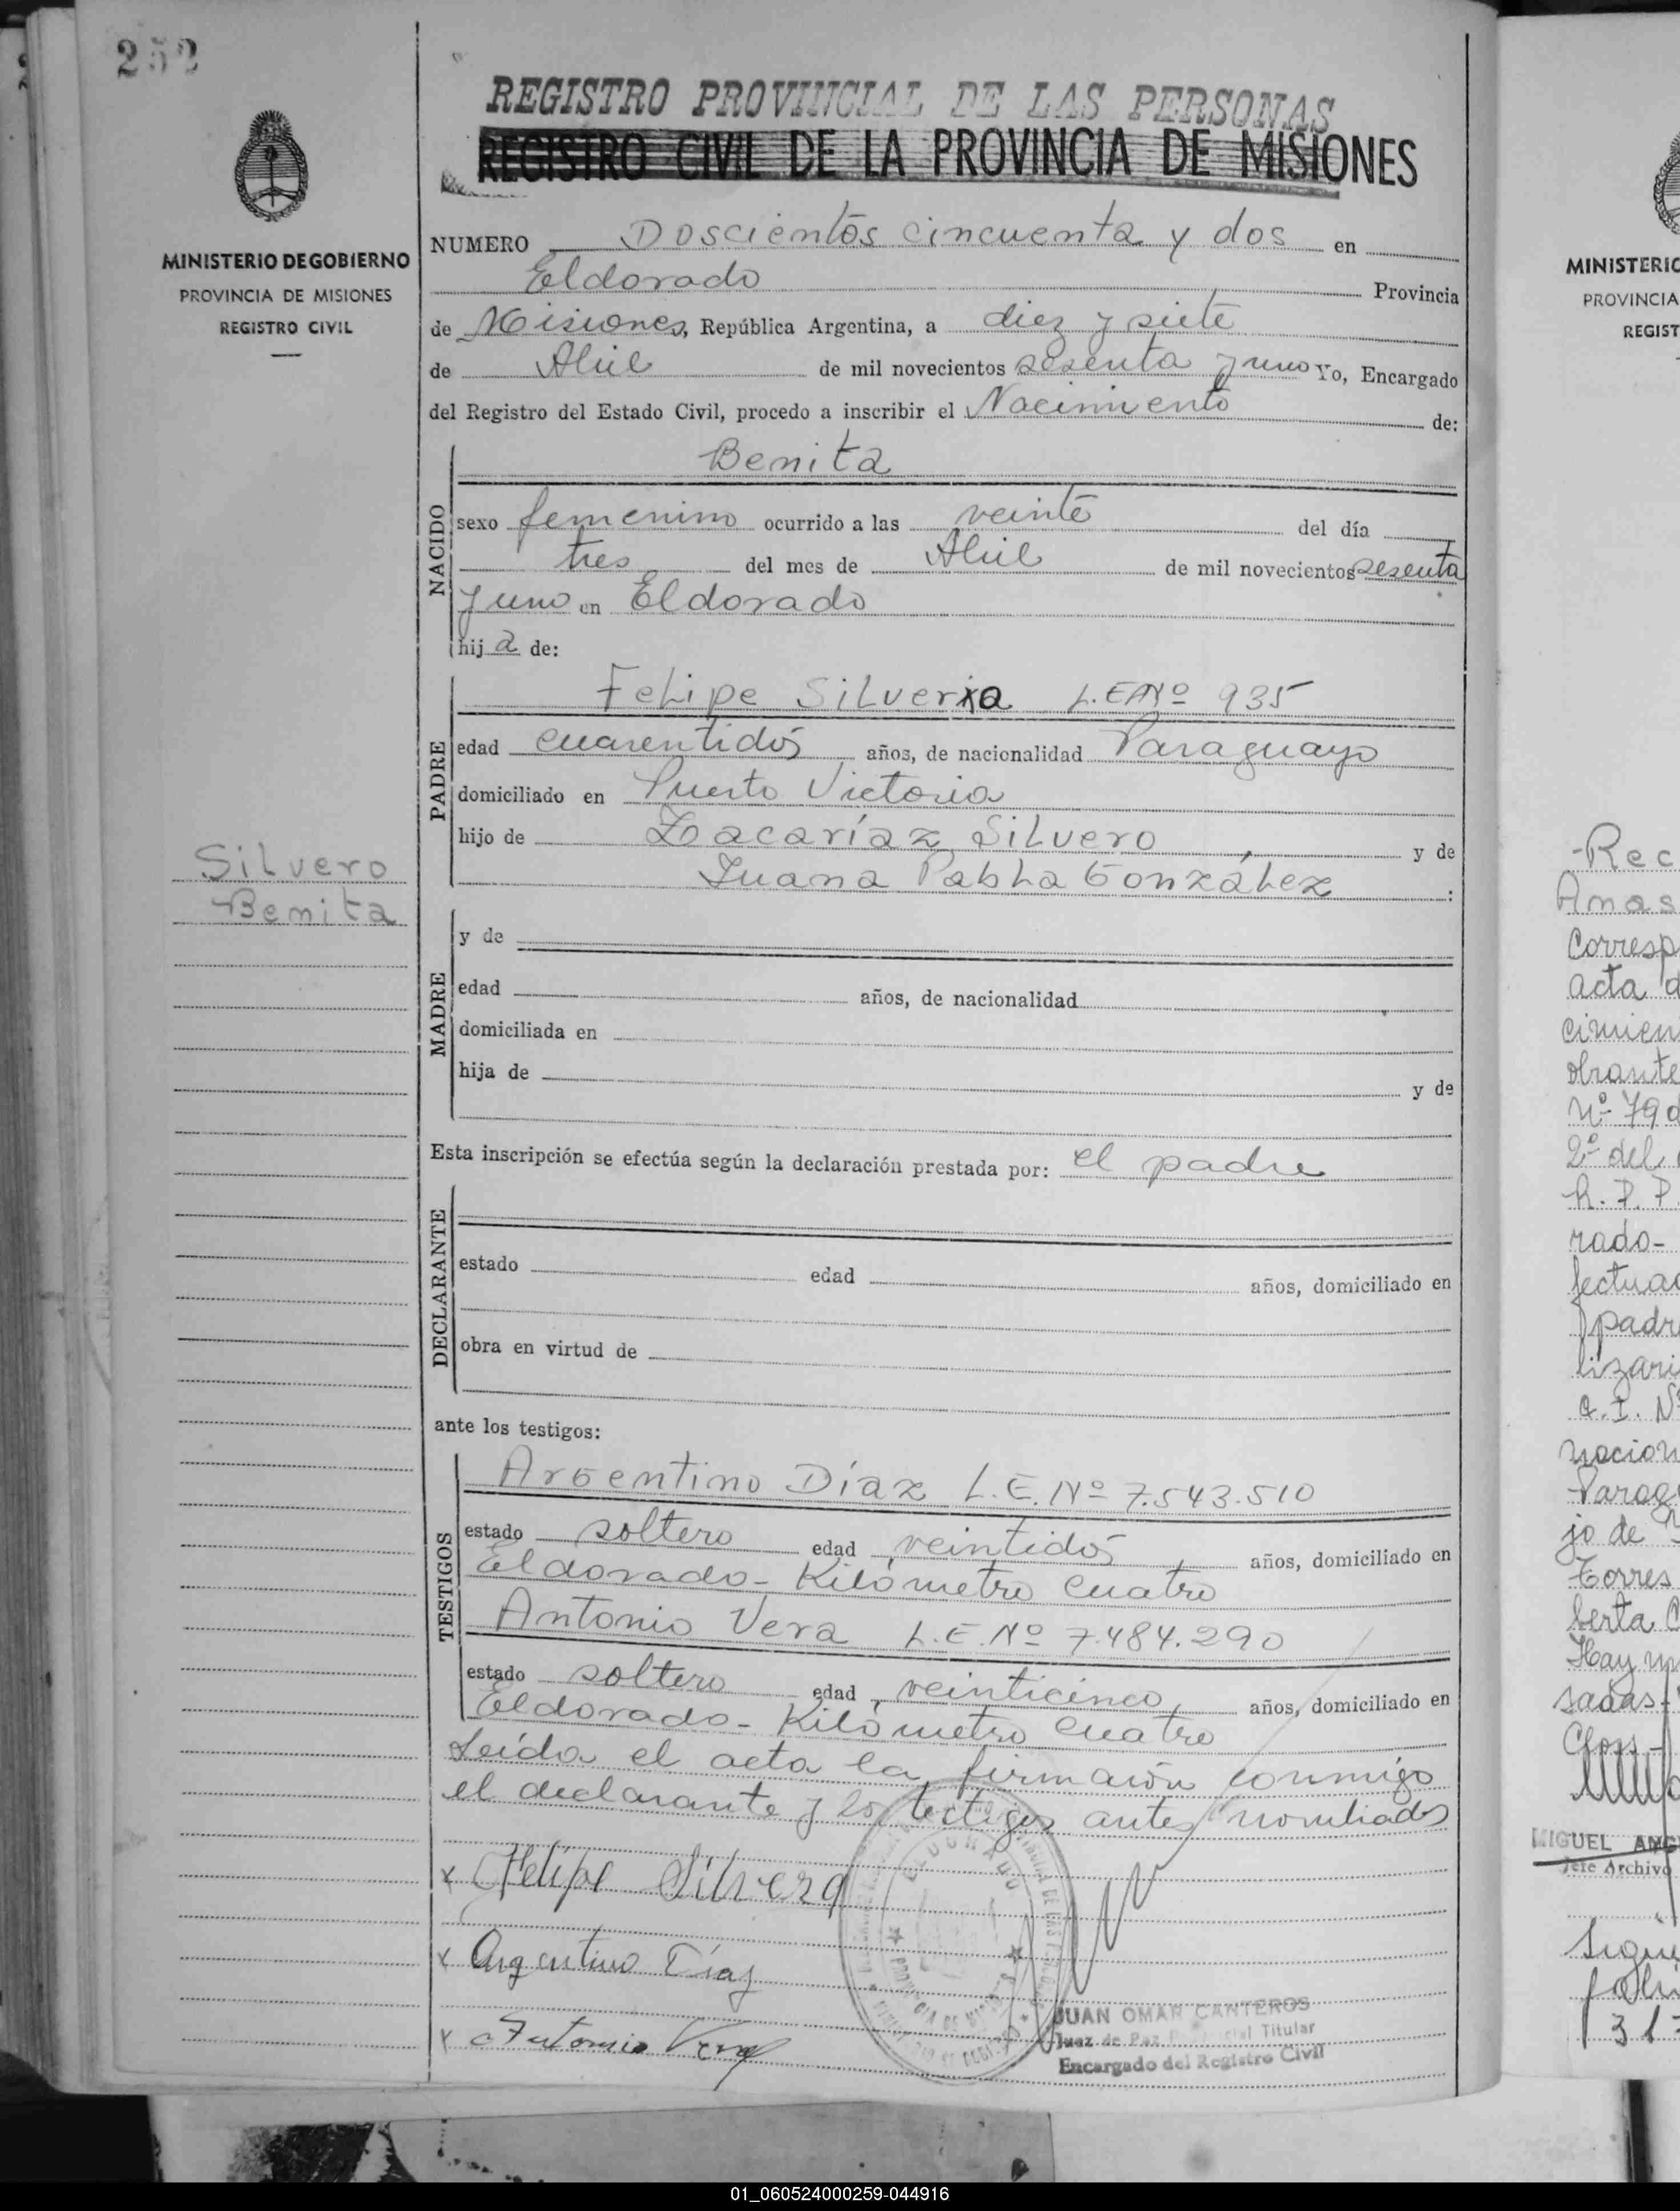 252
REGISTRO PROVINCIAL DE LAS PERSONAS
REGISTRO CIVIL DE LA PROVINCIA DE MISIONES
MINISTERIO DE GOBIERNO
PROVINCIA DE MISIONES
REGISTRO CIVIL
NUMERO Doscientos cincuenta y dos en
Eldorado Provincia
de Misiones, República Argentina, a diez y siete
de Abril de mil novecientos sesenta y uno Yo, Encargado
del Registro del Estado Civil, procedo a inscribir el Nacimiento de:
NACIDO
Benita
sexo femenino ocurrido a las veinte del día
tres del mes de Abril de mil novecientos sesenta
y uno en Eldorado
hij a de:
PADRE
Felipe Silvera L.E.Nº 935
edad cuarentidós años, de nacionalidad Paraguayo
domiciliado en Puerto Victoria
hijo de Zacaríaz Silvero y de
Juana Pabla González :
Silvero
Benita
MADRE
y de
edad años, de nacionalidad
domiciliada en
hija de y de
Esta inscripción se efectúa según la declaración prestada por: el padre
DECLARANTE
estado edad años, domiciliado en
obra en virtud de
ante los testigos:
TESTIGOS
Argentino Díaz L.E. Nº 7.543.510
estado soltero edad veintidós años, domiciliado en
Eldorado - Kilómetro cuatro
Antonio Vera L.E. Nº 7.484.290
estado soltero edad veinticinco años, domiciliado en
Eldorado - Kilómetro cuatro
Leída el acta la firmaron conmigo
el declarante y los testigos antes nombrados
x Felipe Silvera
x Argentino Díaz
x Antonio Vera
ELDORADO
JUAN OMAR CANTEROS
Juez de Paz Titular
Encargado del Registro Civil
MINISTERIO
PROVINCIA
REGIST
Rec
Anas
Corresp
acta d
cimien
obrante
Nº 79 d
2º del
R. P. P.
rado-
fectuad
padr
lizari
C.I. Nº
nacion
Parag
jo de
Torres
berta C
Hay
sadas-
MIGUEL ANG
Jefe Archivo
Sigue
foli
31
01_060524000259-044916